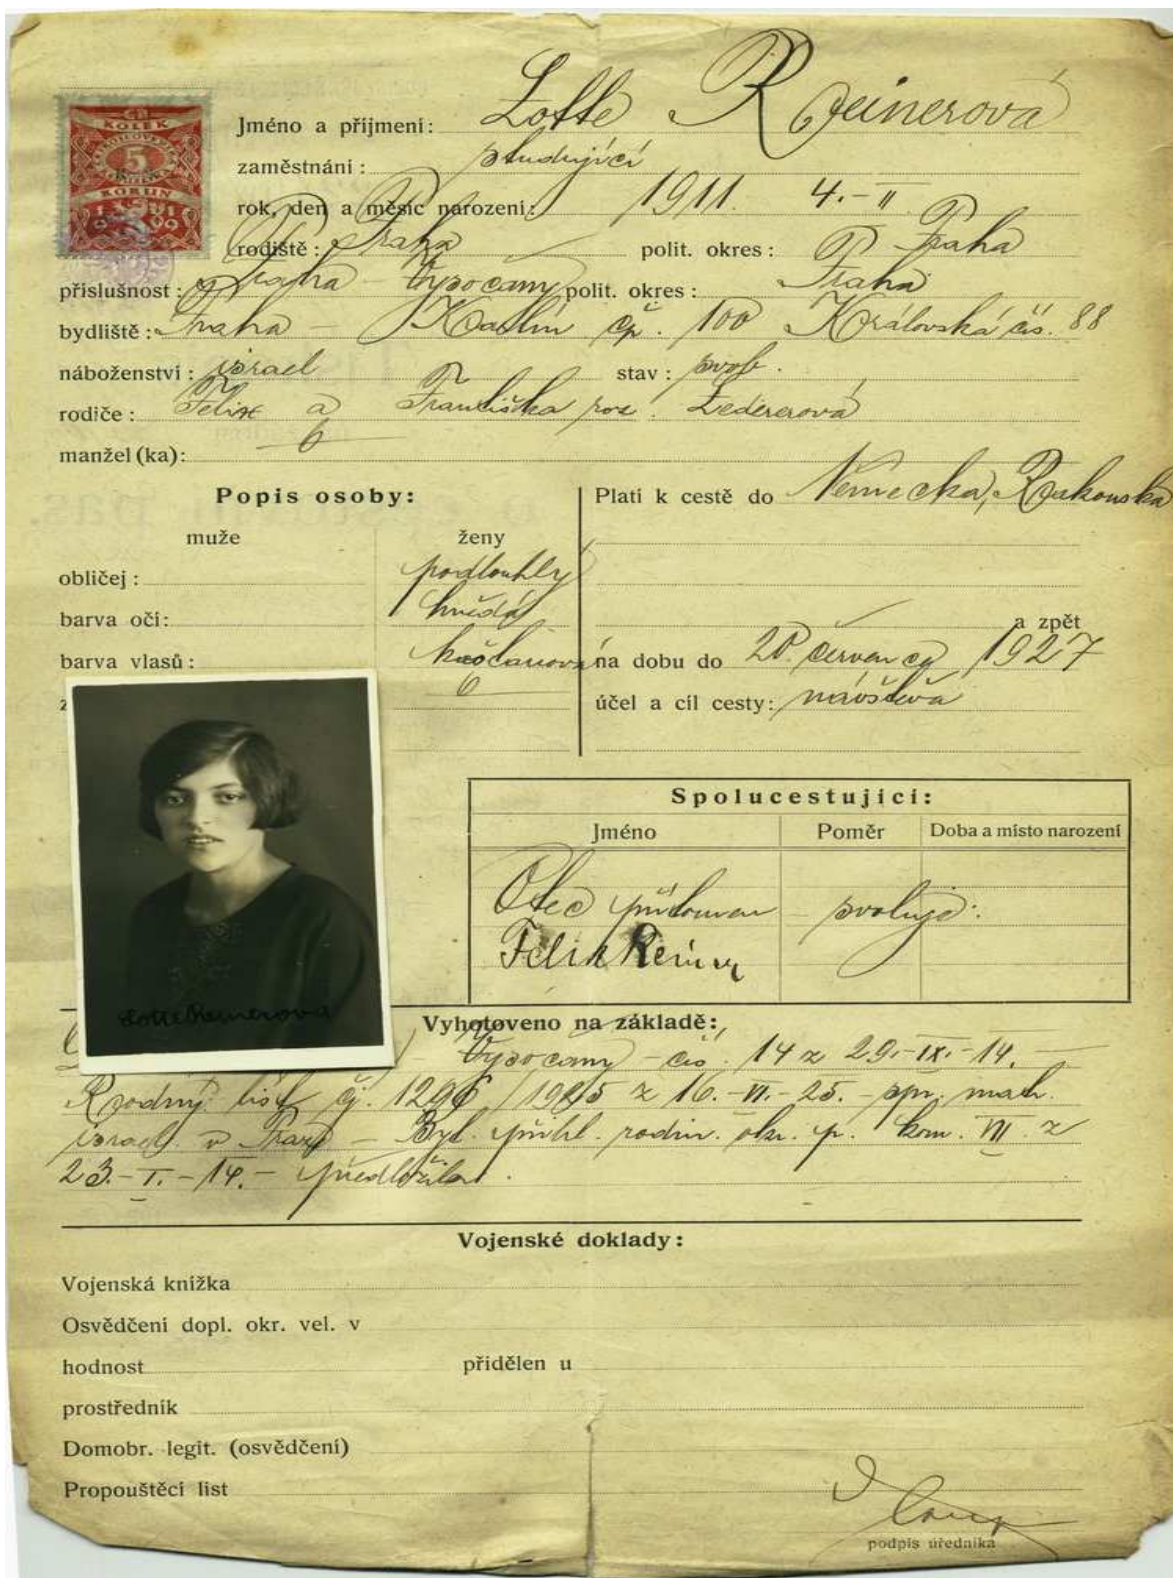 KOLEK
5
KORUN
Jméno a příjmení: Lotte Reinerová
zaměstnání: studující
rok, den a měsíc narození: 1911. 4.-II
rodiště: Praha polit. okres: Praha
příslušnost: Praha - Vysočany polit. okres: Praha
bydliště: Praha - Karlín čp. 100 Královská čís. 88
náboženství: israel stav: svob.
rodiče: Felix a Františka roz. Ledererová
manžel (ka):
Popis osoby:
muže ženy
obličej: podlouhlý
barva očí: hnědá
barva vlasů: kaštanová
Platí k cestě do Německa, Rakouska
a zpět
na dobu do 20. července 1927
účel a cíl cesty: návštěva
Spolucestující:
Jméno Poměr Doba a místo narození
Otec přítomen - svoluje:
Felix Reiner
Lotte Reinerová
Vyhotoveno na základě:
Vysočany - čís. 14 z 29.-IX.-14.
Rodný list čj. 1296/1925 z 16.-VI.-25.- spr. matr.
israel. v Praze - Byt. přihl. rodin. okr. p. kom. VIII. z
23.-I.-14.- předložila.
Vojenské doklady:
Vojenská knížka
Osvědčení dopl. okr. vel. v
hodnost přidělen u
prostředník
Domobr. legit. (osvědčení)
Propouštěcí list
podpis úředníka